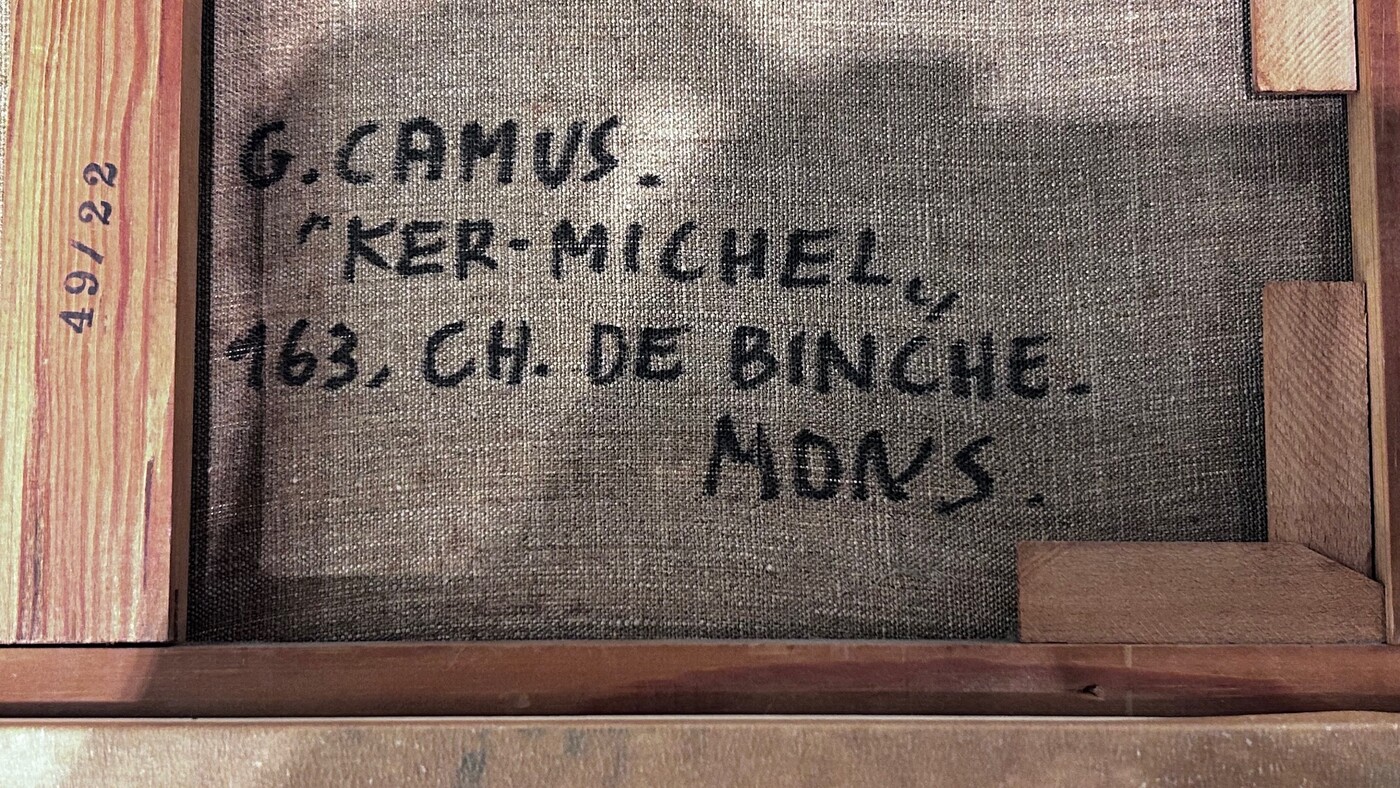 49/22
G. CAMUS.
"KER-MICHEL„
163, CH. DE BINCHE.
MONS.